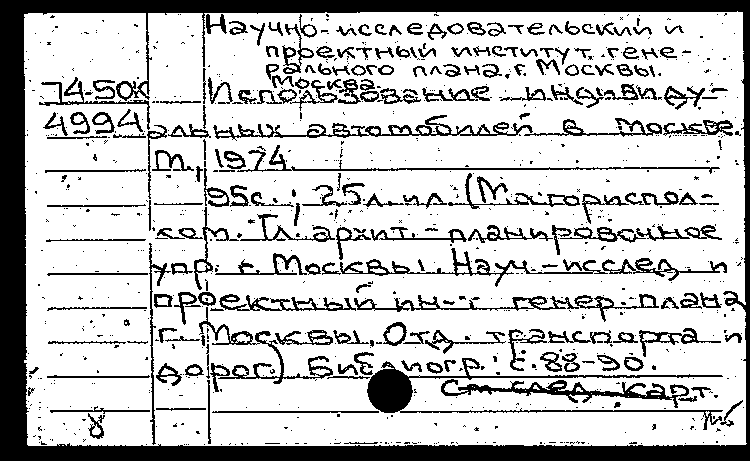 Научно-исследовательский и
проектный институт гене-
рального плана, г. Москвы.
Москва.
74-50К Использование индивиду-
4994 альных автомобилей в Москве.
М., 1974.
95с.; 25л. ил. (Мосгориспол-
ком. Гл. архит.-планировочное
упр. г. Москвы. Науч.-исслед. и
проектный ин-т генер. плана
г. Москвы. Отд. транспорта и
дорог). Библиогр.: с. 88-90.
См след. карт.
8